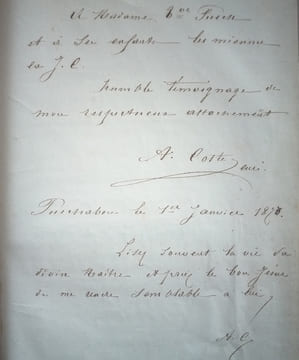 A Madame Vve
et à ses enfants les miennes
en J. C.
humble témoignage de
mon respectueux attachement
A. Coste
le 1er Janvier 1878.
Lisez souvent la vie du
divin Maître et priez le bon Jésus
de me rendre semblable à lui
A C